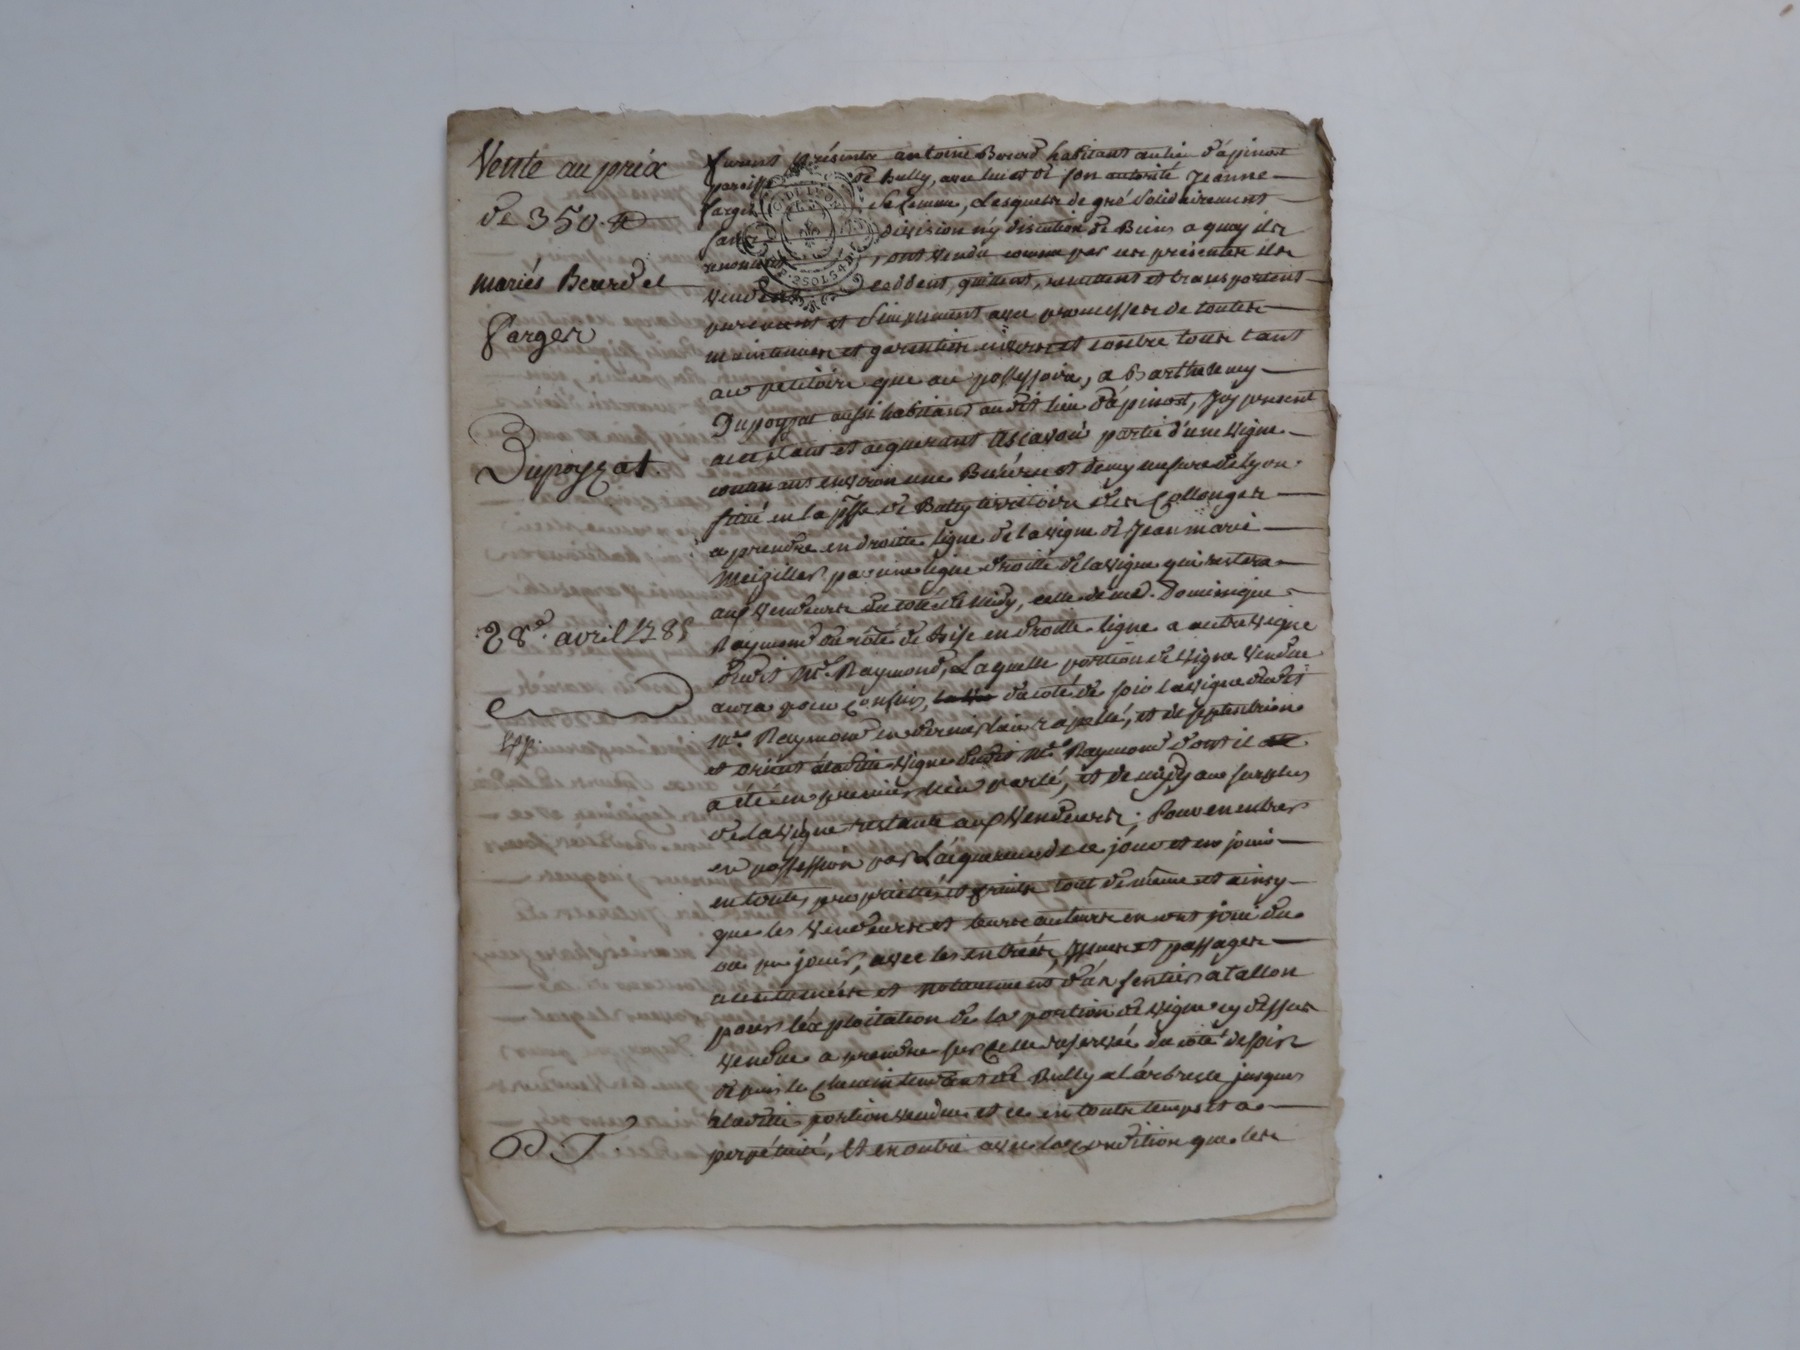 Vente au prix
de 350 #
mariés Berard et
Farges
Dupoyzat
28e. avril 1785
D T.
furent présents antoine Berard habitant au lieu d'apinost
paroisse de Bully, avec luy et de son autorité Jeanne
farges sa femme, Lesquels de gré solidairement
sans division ny discution de Biens a quoy ils
renoncent, ont vendu comme par ces présentes ils
vendent cèddent, quittent, remettent et transportent
purement et simplement avec promesses de toutes
maintenues et garenties envers et contre tous tant
au petitoire que au possessoire, a Barthelemy
Dupoyzat aussi habitant audit lieu d'apinost, Icy present
acceptant et acquerant Asçavoir partie d'une vigne
contenant environ une Bicherée et demy mesure de Lyon
situé en la psse de Bully territoire des Collonges
a prendre en droitte ligne de la vigne de Jean marie
par une ligne droitte de la vigne qui restera
aux vendeurs du coté de midy, celle de me. Dominique
Raymond du côté de bise en droitte ligne a autre vigne
dudit Me. Raymond, Laquelle portion de vigne vendue
aura pour confins, du coté de soir la vigne dudit
me. Raymond en dernier lieu rapellé, et de septentrion
et orient a laditte vigne dudit Me. Raymond dont il
a été en premier lieu parlé, et de midy au surplus
de la vigne restante aux vendeurs; Pour en entrer
en possession par L'acquereur de ce jour et en jouir
en toute propriettés et fruits tout de même et ainsy
que les vendeurs et leurs auteurs en ont joui du
ou pu jouir, avec les entrées, issues et passages
accoutumées et notamment d'un sentier a tallon
pour l'exploitation de la portion de vigne cy dessus
vendue a prendre sur celle reservée du coté de soir
depuis le chemin tendant de Bully a l'arbresle jusques
a laditte portion vendue et ce en toute temps et a
perpétuité, Et en outre avec la condition que les